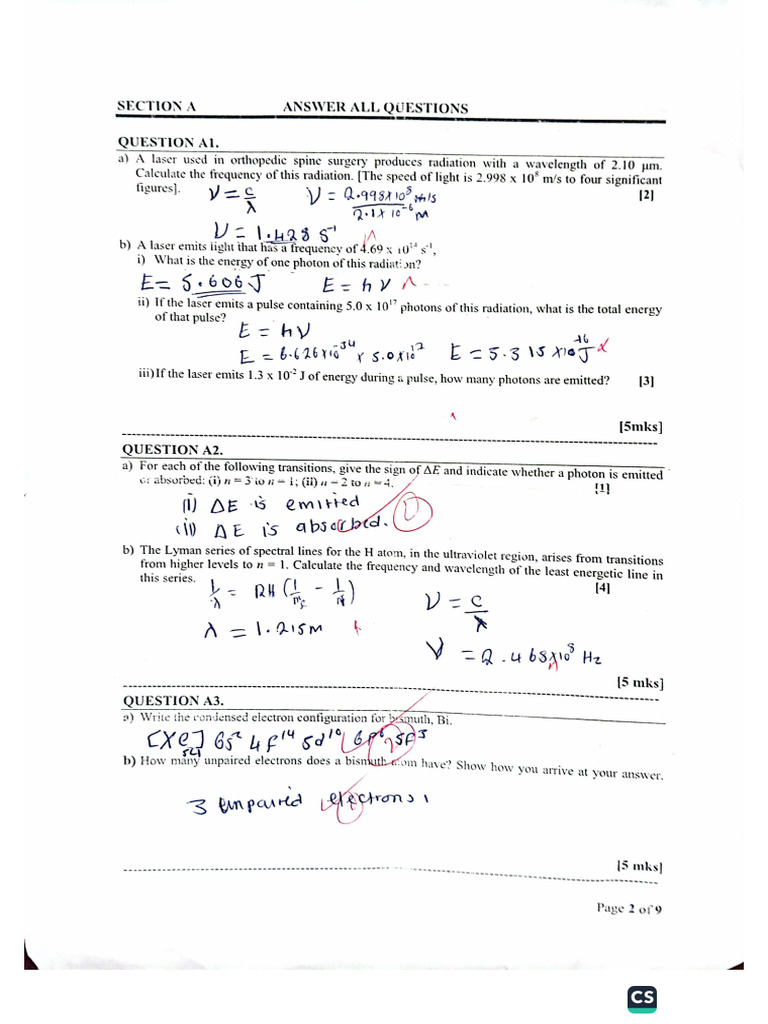 SECTION A ANSWER ALL QUESTIONS
QUESTION A1.
a) A laser used in orthopedic spine surgery produces radiation with a wavelength of 2.10 μm.
Calculate the frequency of this radiation. [The speed of light is 2.998 x 10⁸ m/s to four significant
figures]. [2]
ν = c/λ ν = 2.998x10⁸ m/s / 2.1x10⁻⁶ m
ν = 1.428 s⁻¹
b) A laser emits light that has a frequency of 4.69 x 10¹⁴ s⁻¹,
i) What is the energy of one photon of this radiation?
E = 5.606 J E = hν
ii) If the laser emits a pulse containing 5.0 x 10¹⁷ photons of this radiation, what is the total energy
of that pulse?
E = hν
E = 6.626x10⁻³⁴ x 5.0x10¹⁷ E = 5.315 x10⁻¹⁶ J
iii) If the laser emits 1.3 x 10⁻² J of energy during a pulse, how many photons are emitted? [3]
[5mks]
QUESTION A2.
a) For each of the following transitions, give the sign of ΔE and indicate whether a photon is emitted
or absorbed: (i) n = 3 to n = 1; (ii) n = 2 to n = 4. [1]
(i) ΔE is emitted
(ii) ΔE is absorbed. 1
b) The Lyman series of spectral lines for the H atom, in the ultraviolet region, arises from transitions
from higher levels to n = 1. Calculate the frequency and wavelength of the least energetic line in
this series. [4]
1/λ = RH ( 1/ - 1/ ) ν = c/λ
λ = 1.215m
ν = 2.468x10⁸ Hz
[5 mks]
QUESTION A3.
a) Write the condensed electron configuration for bismuth, Bi.
[Xe]54 6s² 4f¹⁴ 5d¹⁰
b) How many unpaired electrons does a bismuth atom have? Show how you arrive at your answer.
3 unpaired electrons
[5 mks]
Page 2 of 9
CS